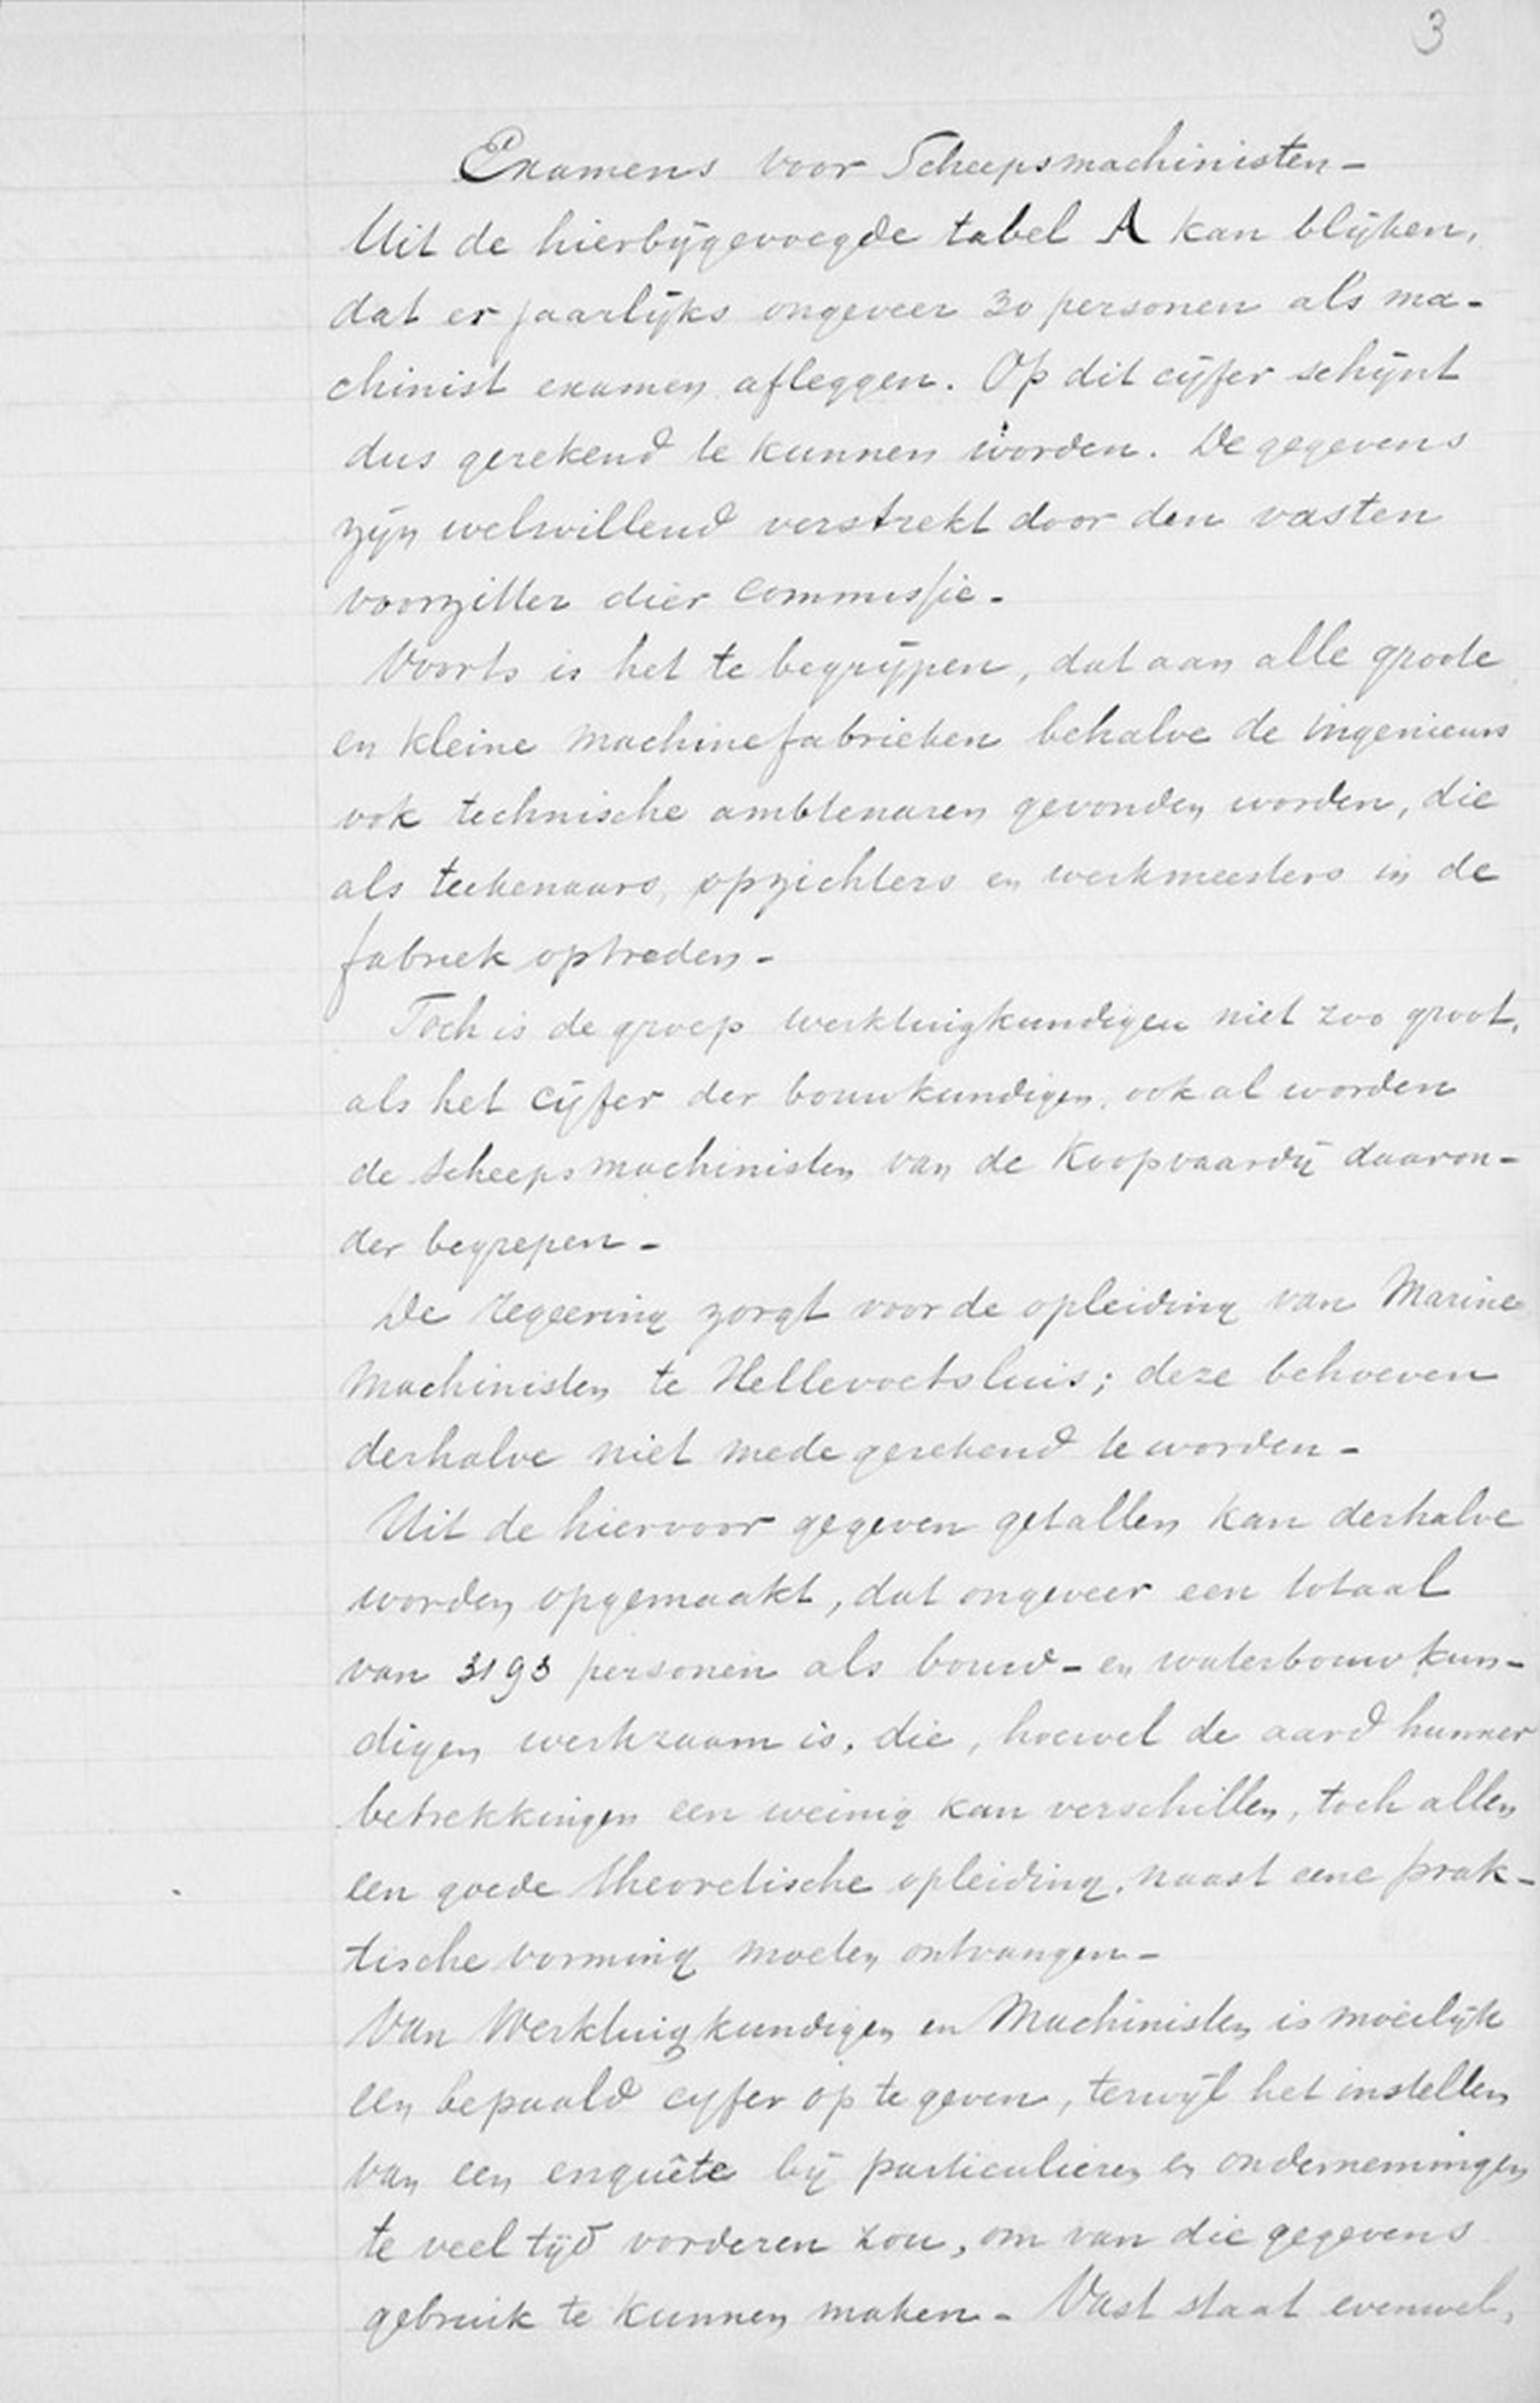 3
Examens voor Scheepsmachinisten -
Uit de hierbijgevoegde tabel A kan blijken,
dat er jaarlijks ongeveer 30 personen als ma-
chinist examen afleggen. Op dit cijfer schijnt
dus gerekend te kunnen worden. De gegevens
zijn welwillend verstrekt door den vasten
voorzitter dier commissie -
Voorts is het te begrijpen, dat aan alle groote
en kleine machinefabrieken behalve de ingenieurs
ook technische ambtenaren gevonden worden, die
als teekenaars, opzichters en werkmeesters in de
fabriek optreden -
Toch is de groep werktuigkundigen niet zoo groot,
als het cijfer der bouwkundigen, ook al worden
de scheepsmachinisten van de Koopvaardij daaron-
der begrepen -
De regeering zorgt voor de opleiding van Marine
machinisten te Hellevoetsluis; deze behoeven
derhalve niet mede gerekend te worden -
Uit de hiervoor gegeven getallen kan derhalve
worden opgemaakt, dat ongeveer een totaal
van 3193 personen als bouw- en waterbouwkun-
digen werkzaam is, die, hoewel de aard hunner
betrekkingen een weinig kan verschillen, toch allen
een goede theoretische opleiding, naast eene prak-
tische vorming moeten ontvangen -
Van Werktuigkundigen en Machinisten is moeilijk
een bepaald cyfer op te geven, terwijl het instellen
van een enquête bij particulieren en ondernemingen
te veel tijd vorderen zou, om van die gegevens
gebruik te kunnen maken - Vast staat evenwel,